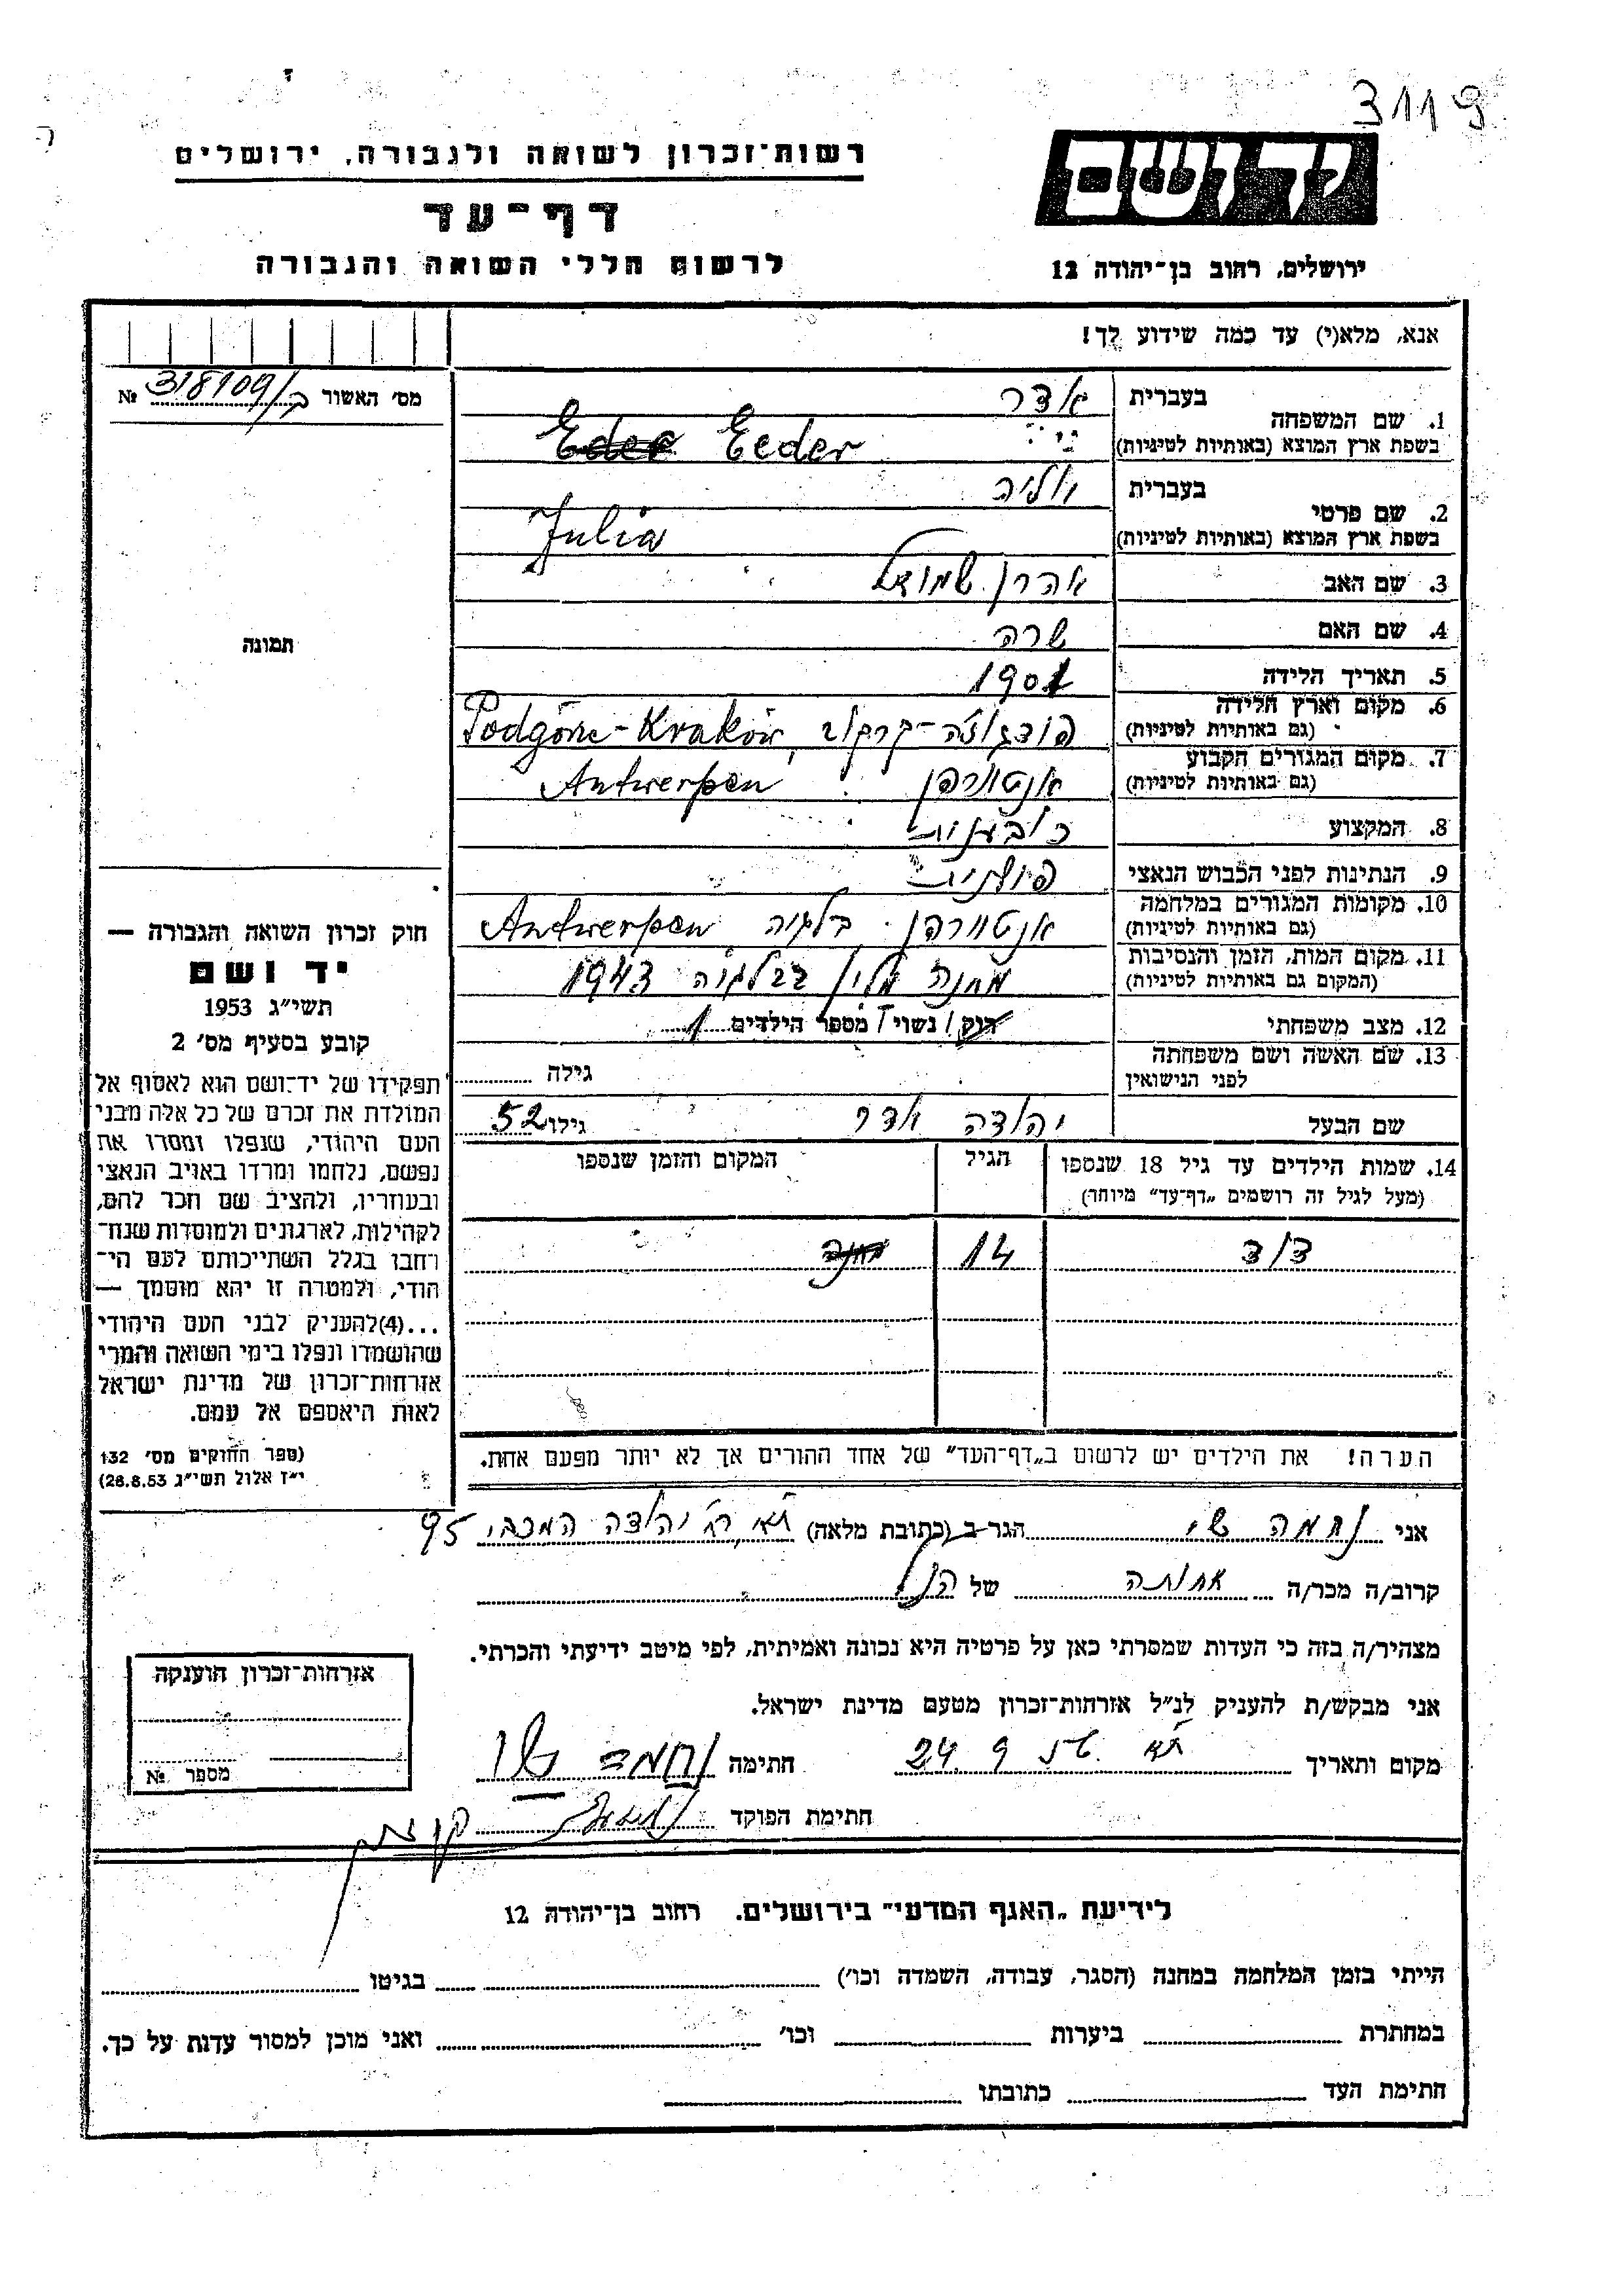 3119
רשות־זכרון לשואה ולגבורה, ירושלים
דף־עד
לרשום חללי השואה והגבורה
יד ושם
ירושלים, רחוב בן־יהודה 12
אנא, מלא(י) עד כמה שידוע לך!
מס׳ האשור ב/318109 №
תמונה
חוק זכרון השואה והגבורה —
יד ושם
תשי״ג 1953
קובע בסעיף מס׳ 2
תפקידו של יד־ושם הוא לאסוף אל
המולדת את זכרם של כל אלה מבני
העם היהודי, שנפלו ומסרו את
נפשם, נלחמו ומרדו באויב הנאצי
ובעוזריו, ולהציב שם וזכר להם,
לקהילות, לארגונים ולמוסדות שנח־
רחבו בגלל השתייכותם לעם הי־
הודי, ולמטרה זו יהא מוסמך —
...(4)להעניק לבני העם היהודי
שהושמדו ונפלו בימי השואה והמרי
אזרחות־זכרון של מדינת ישראל
לאות היאספם אל עמם.
(ספר החוקים מס׳ 132
י״ז אלול תשי״ג 28.8.53)
1. שם המשפחה בעברית אדר
בשפת ארץ המוצא (באותיות לטיניות) Eder Eeder
2. שם פרטי בעברית יוליה
בשפת ארץ המוצא (באותיות לטיניות) Julia
3. שם האב אהרן שמואל
4. שם האם שרה
5. תאריך הלידה 1901
6. מקום וארץ הלידה
(גם באותיות לטיניות) פודגוז'ה-קרקוב, Podgórze-Kraków
7. מקום המגורים הקבוע
(גם באותיות לטיניות) אנטוורפן Antwerpen
8. המקצוע כובענית
9. הנתינות לפני הכבוש הנאצי פולנית
10. מקומות המגורים במלחמה
(גם באותיות לטיניות) אנטוורפן בלגיה Antwerpen
11. מקום המות, הזמן והנסיבות
(המקום גם באותיות לטיניות) מחנה מלין בבלגיה 1943
12. מצב משפחתי רוק/נשוי/ מספר הילדים 1
13. שם האשה ושם משפחתה
לפני הנישואין גילה
שם הבעל יהודה אדר גילו 52
14. שמות הילדים עד גיל 18 שנספו הגיל המקום והזמן שנספו
(מעל לגיל זה רושמים „דף־עד״ מיוחד)
דוד 14
הערה! את הילדים יש לרשום ב„דף־העד״ של אחד ההורים אך לא יותר מפעם אחת.
אני נחמה שי הגר ב (כתובת מלאה) ת״א רח׳ יהודה המכבי 95
קרוב/ה מכר/ה אחותה של הנ״ל
מצהיר/ה בזה כי העדות שמסרתי כאן על פרטיה היא נכונה ואמיתית, לפי מיטב ידיעתי והכרתי.
אני מבקש/ת להעניק לנ״ל אזרחות־זכרון מטעם מדינת ישראל.
מקום ותאריך ת״א 24.9 חתימה נחמה שי
חתימת הפוקד
אזרחות־זכרון הוענקה
מספר №
לידיעת „האגף המדעי״ בירושלים. רחוב בן־יהודה 12
הייתי בזמן המלחמה במחנה (הסגר, עבודה, השמדה וכו׳) בגיטו
במחתרת ביערות וכו׳ ואני מוכן למסור עדות על כך.
חתימת העד כתובתו